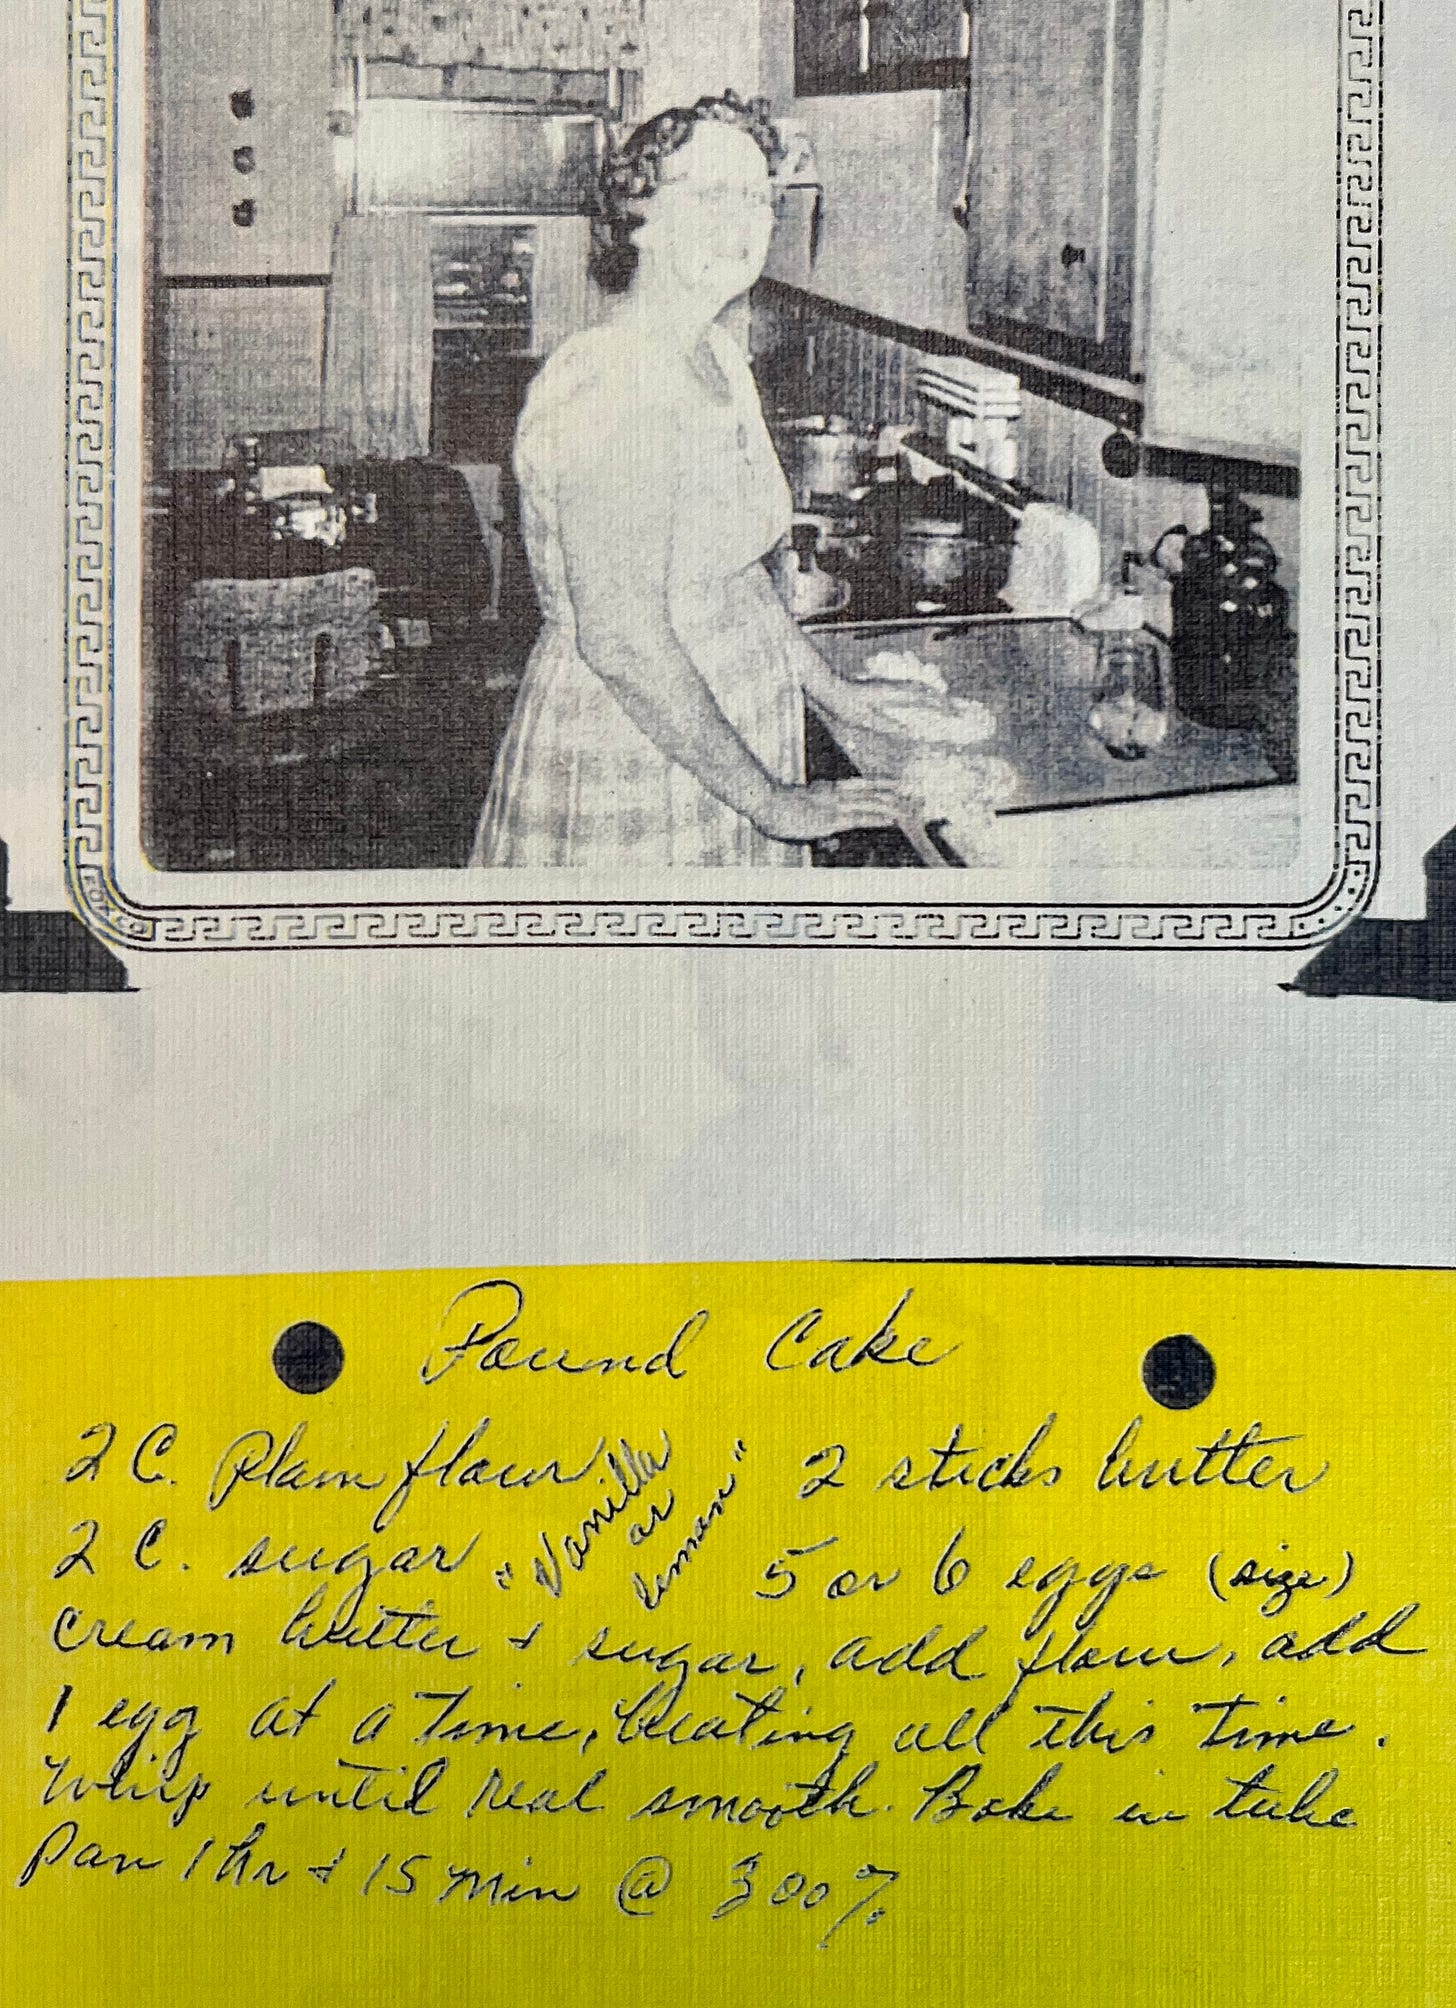 Pound Cake
2 C. Plain flour "Vanilla or lemon" 2 sticks butter
2 C. sugar 5 or 6 eggs (size)
cream butter + sugar, add flour, add
1 egg at a time, beating all this time.
Whip until real smooth. Bake in tube
Pan 1 hr + 15 min @ 300%